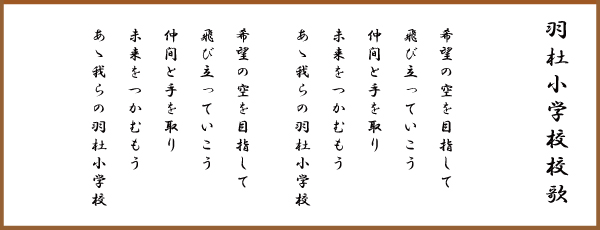 羽杜小学校校歌
希望の空を目指して
飛び立っていこう
仲间と手を取り
未来をつかむもう
あゝ我らの羽杜小学校
希望の空を目指して
飛び立っていこう
仲间と手を取り
未来をつかむもう
あゝ我らの羽杜小学校